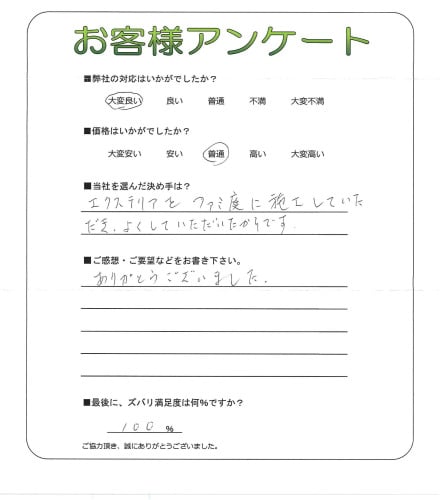 お客様アンケート
■弊社の対応はいかがでしたか？
大変良い 良い 普通 不満 大変不満
■価格はいかがでしたか？
大変安い 安い 普通 高い 大変高い
■当社を選んだ決め手は？
エクステリアを 度に施工していた
だき、よくしていただいたからです.
■ご感想・ご要望などをお書き下さい。
ありがとうございました.
■最後に、ズバリ満足度は何%ですか？
100 %
ご協力頂き、誠にありがとうございました。